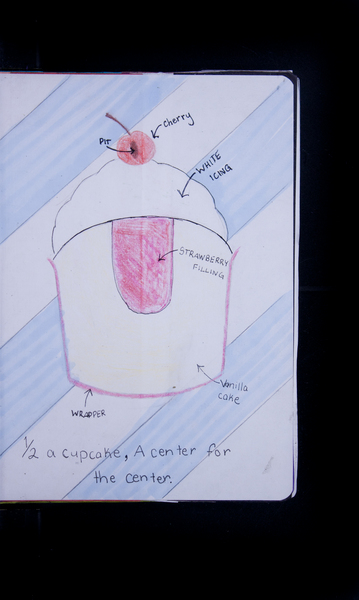 Cherry
PIT
WHITE
ICING
STRAWBERRY
FILLING
Vanilla
cake
WRAPPER
1/2 a cupcake, A center for
the center.